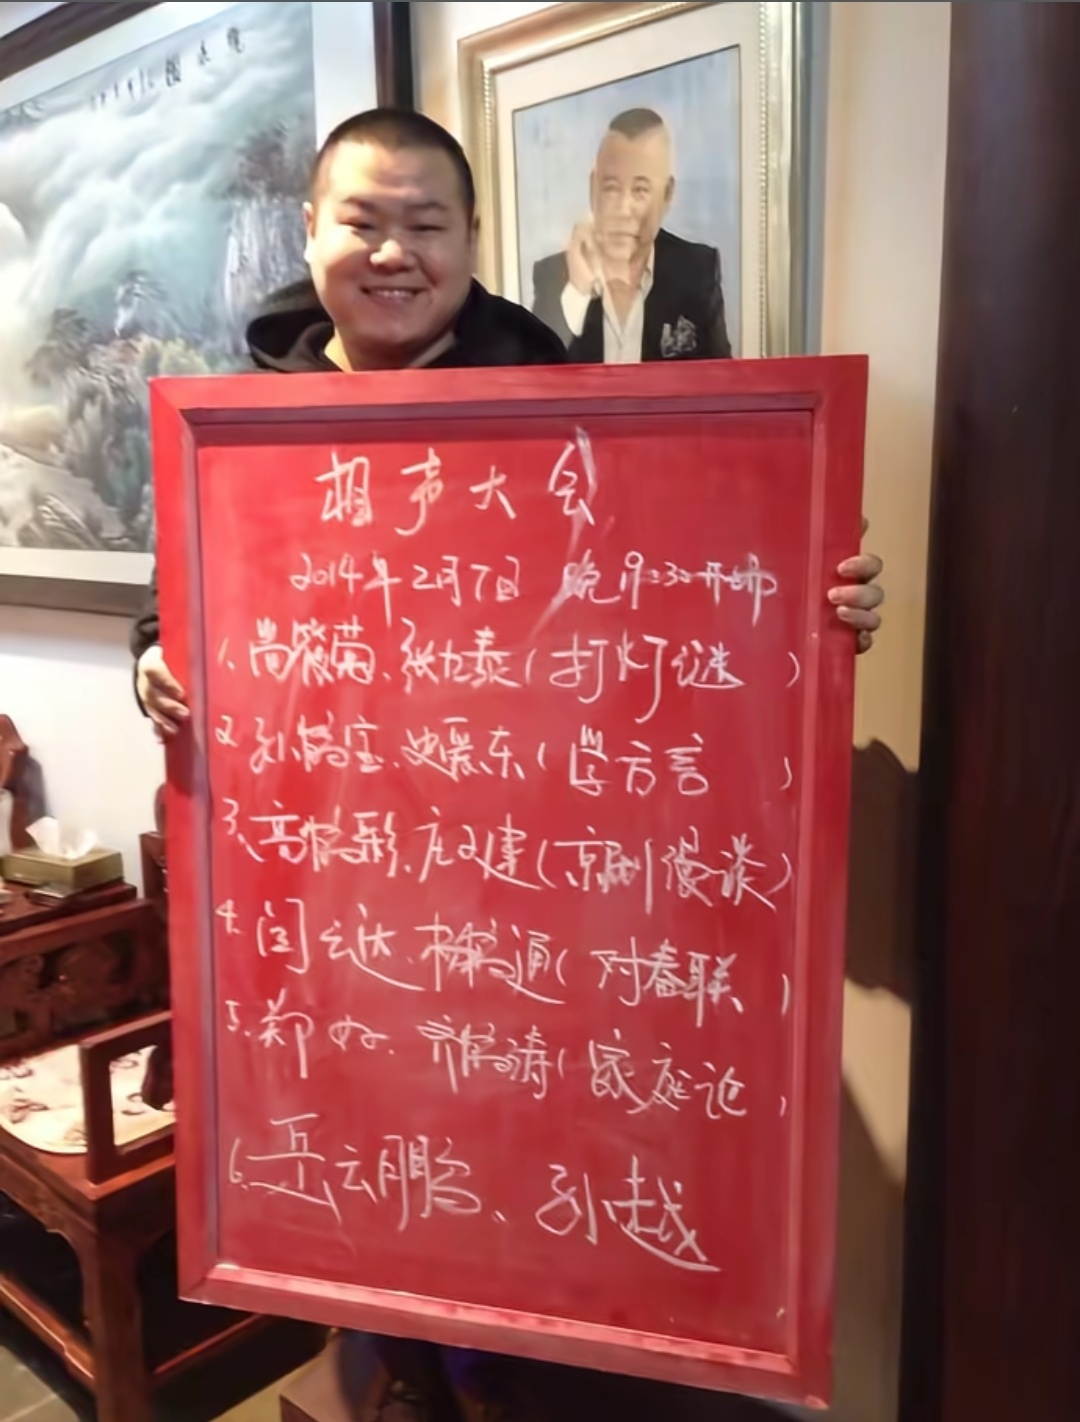 相声大会
2014年2月7日 晚19:30开始
1、尚筱菊、张九泰(打灯谜)
2、孙鹤宝、史爱东(学方言)
3、高鹤彩、庄子建(京剧漫谈)
4、闫云达、杨鹤通(对春联)
5、郑好、齐鹤涛(家庭论)
6、岳云鹏、孙越